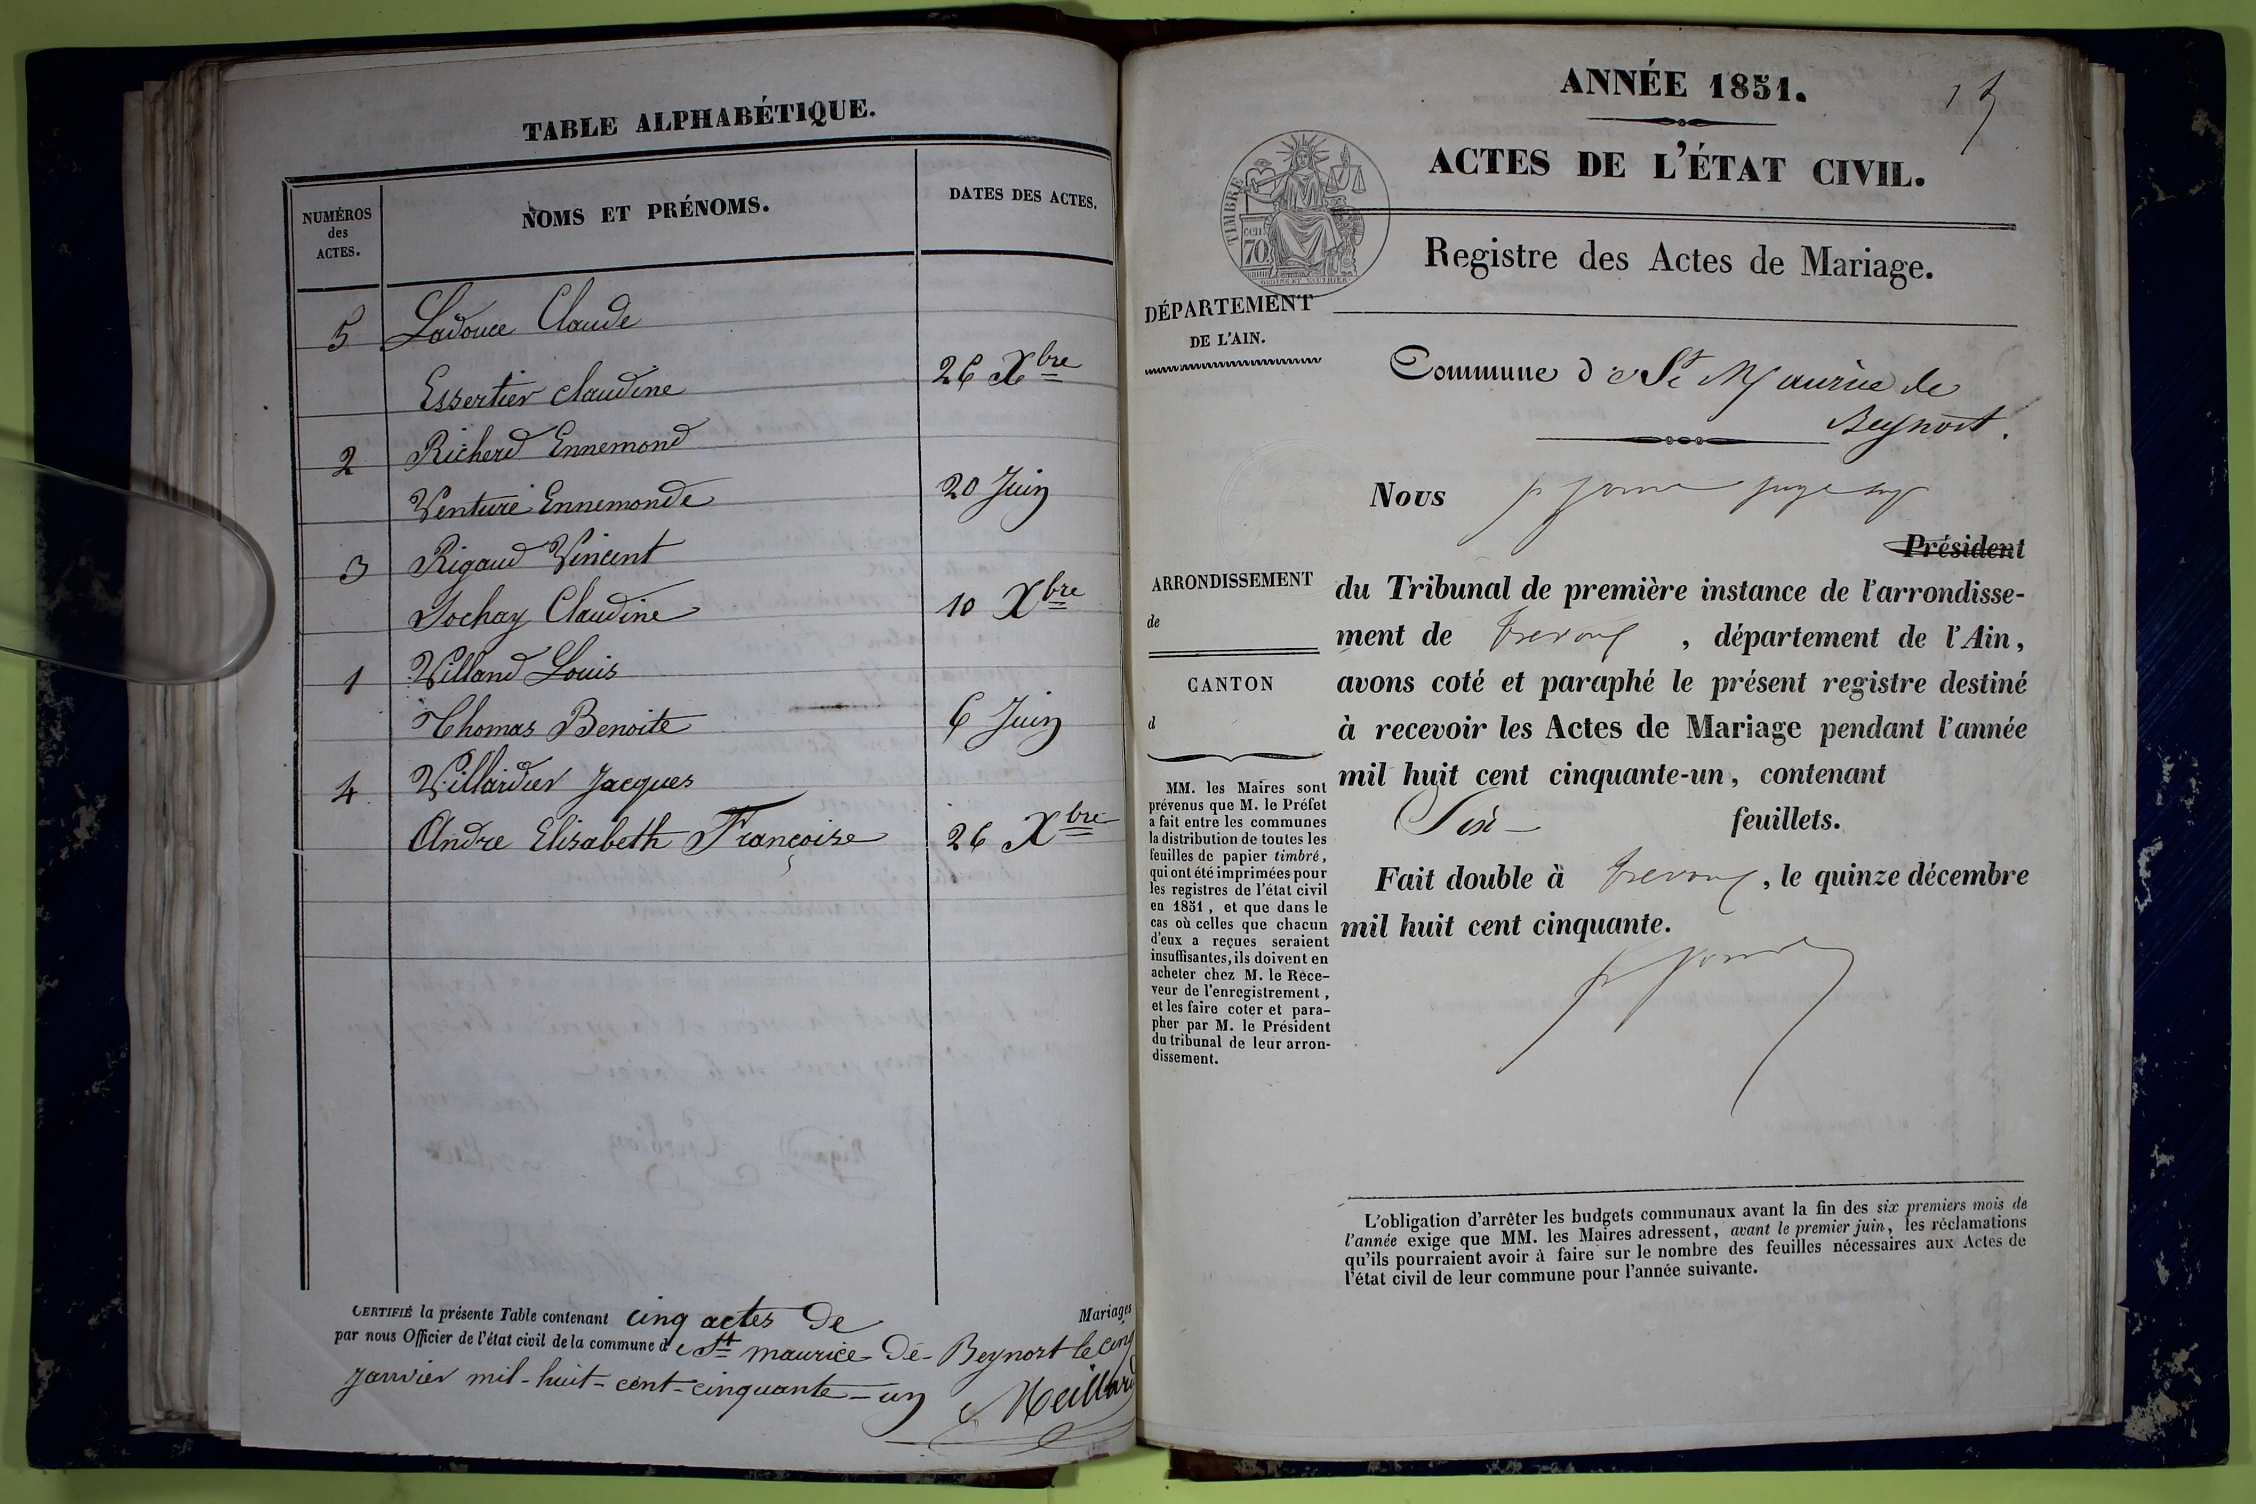 TABLE ALPHABÉTIQUE.
NUMÉROS
des
ACTES.
NOMS ET PRÉNOMS.
DATES DES ACTES.
5 Ladouce Claude
Essertier Claudine 26 Xbre
2 Richerd Ennemond
Venture Ennemonde 20 Juin
3 Rigaud Vincent
Jochay Claudine 10 Xbre
1 Villand Louis
Thomas Benoite 6 Juin
4 Villardier Jacques
Andre Elisabeth Françoise 26 Xbre
CERTIFIÉ la présente Table contenant cinq actes de Mariages
par nous Officier de l'état civil de la commune de St maurice de Beynost le cinq
janvier mil-huit-cent-cinquante-un
Meillard
ANNÉE 1851.
ACTES DE L'ÉTAT CIVIL.
TIMBRE
70
Registre des Actes de Mariage.
DÉPARTEMENT
DE L'AIN.
Commune de St Maurice de
Beynost.
ARRONDISSEMENT
de
CANTON
d
MM. les Maires sont
prévenus que M. le Préfet
a fait entre les communes
la distribution de toutes les
feuilles de papier timbré,
qui ont été imprimées pour
les registres de l'état civil
en 1851, et que dans le
cas où celles que chacun
d'eux a reçues seraient
insuffisantes, ils doivent en
acheter chez M. le Rece-
veur de l'enregistrement,
et les faire coter et para-
pher par M. le Président
du tribunal de leur arron-
dissement.
Nous
Président
du Tribunal de première instance de l'arrondisse-
ment de trevoux, département de l'Ain,
avons coté et paraphé le présent registre destiné
à recevoir les Actes de Mariage pendant l'année
mil huit cent cinquante-un, contenant
Six feuillets.
Fait double à trevoux, le quinze décembre
mil huit cent cinquante.
L'obligation d'arrêter les budgets communaux avant la fin des six premiers mois de
l'année exige que MM. les Maires adressent, avant le premier juin, les réclamations
qu'ils pourraient avoir à faire sur le nombre des feuilles nécessaires aux Actes de
l'état civil de leur commune pour l'année suivante.